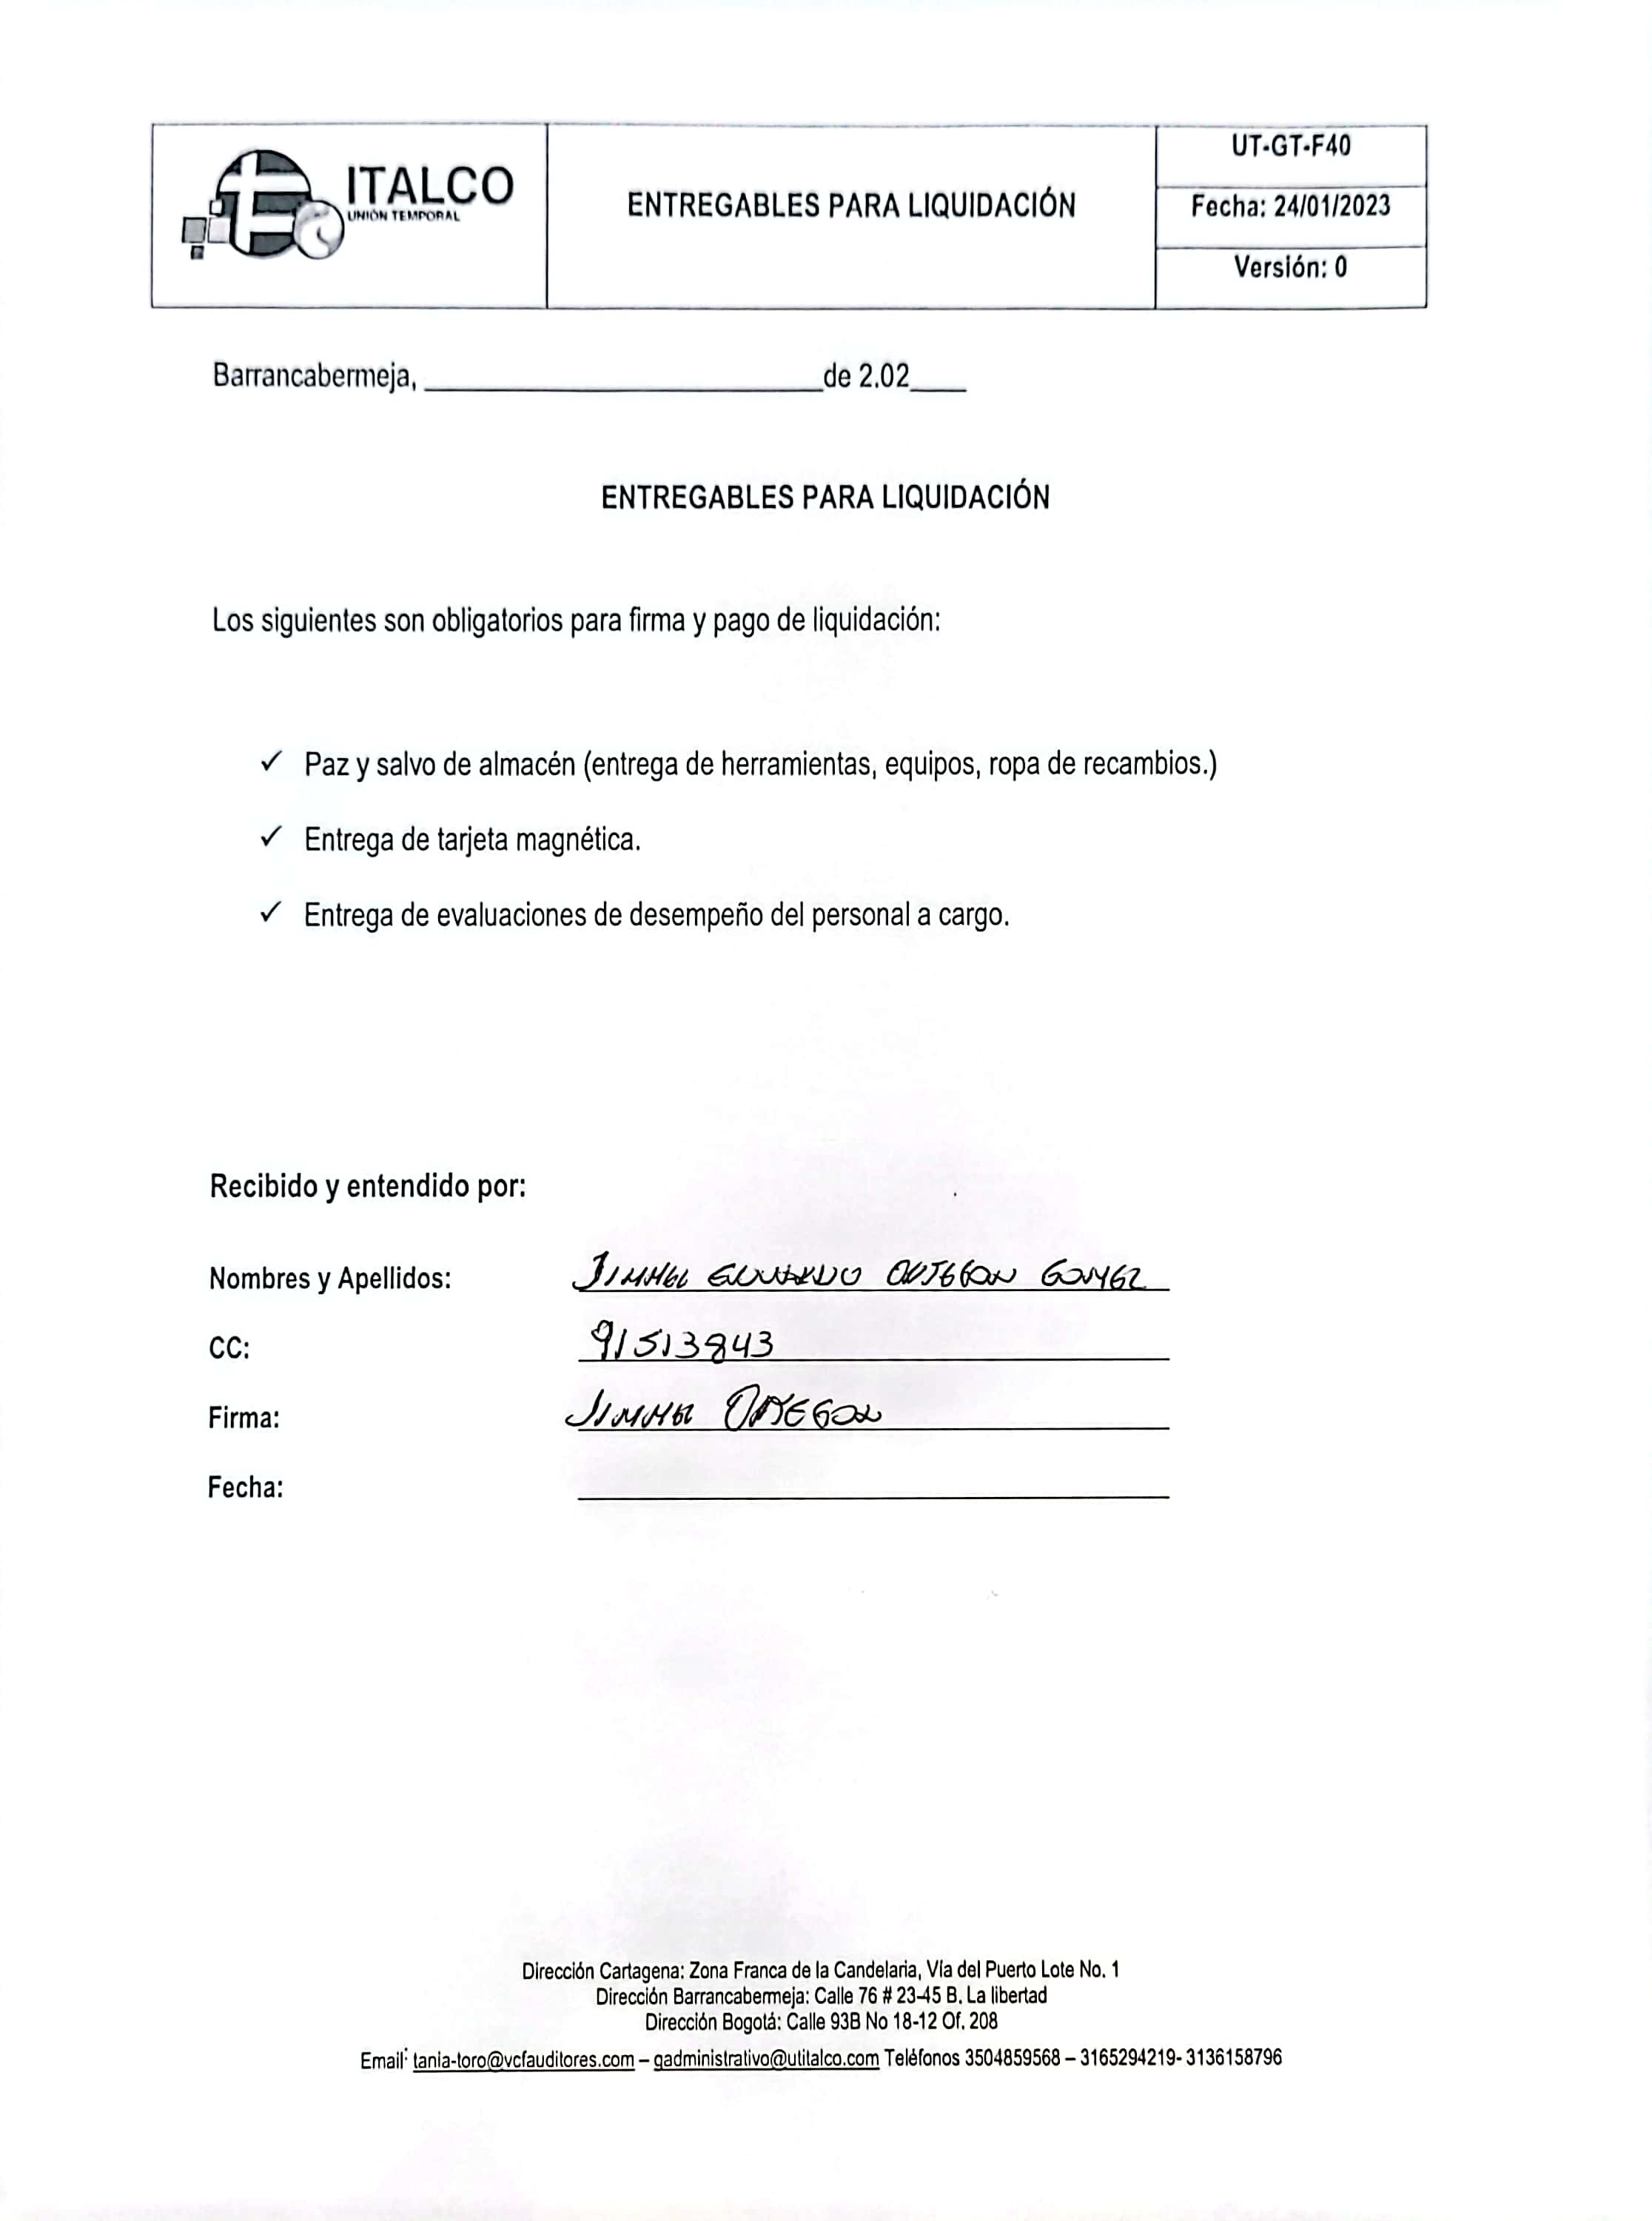 ITALCO
UNIÓN TEMPORAL
ENTREGABLES PARA LIQUIDACIÓN
UT-GT-F40
Fecha: 24/01/2023
Versión: 0
Barrancabermeja, ____________________de 2.02____
ENTREGABLES PARA LIQUIDACIÓN
Los siguientes son obligatorios para firma y pago de liquidación:
✓ Paz y salvo de almacén (entrega de herramientas, equipos, ropa de recambios.)
✓ Entrega de tarjeta magnética.
✓ Entrega de evaluaciones de desempeño del personal a cargo.
Recibido y entendido por:
Nombres y Apellidos: GOMEZ
CC: 91513843
Firma:
Fecha:
Dirección Cartagena: Zona Franca de la Candelaria, Vía del Puerto Lote No. 1
Dirección Barrancabermeja: Calle 76 # 23-45 B. La libertad
Dirección Bogotá: Calle 93B No 18-12 Of. 208
Email: tania-toro@vcfauditores.com – gadministrativo@utitalco.com Teléfonos 3504859568 – 3165294219- 3136158796